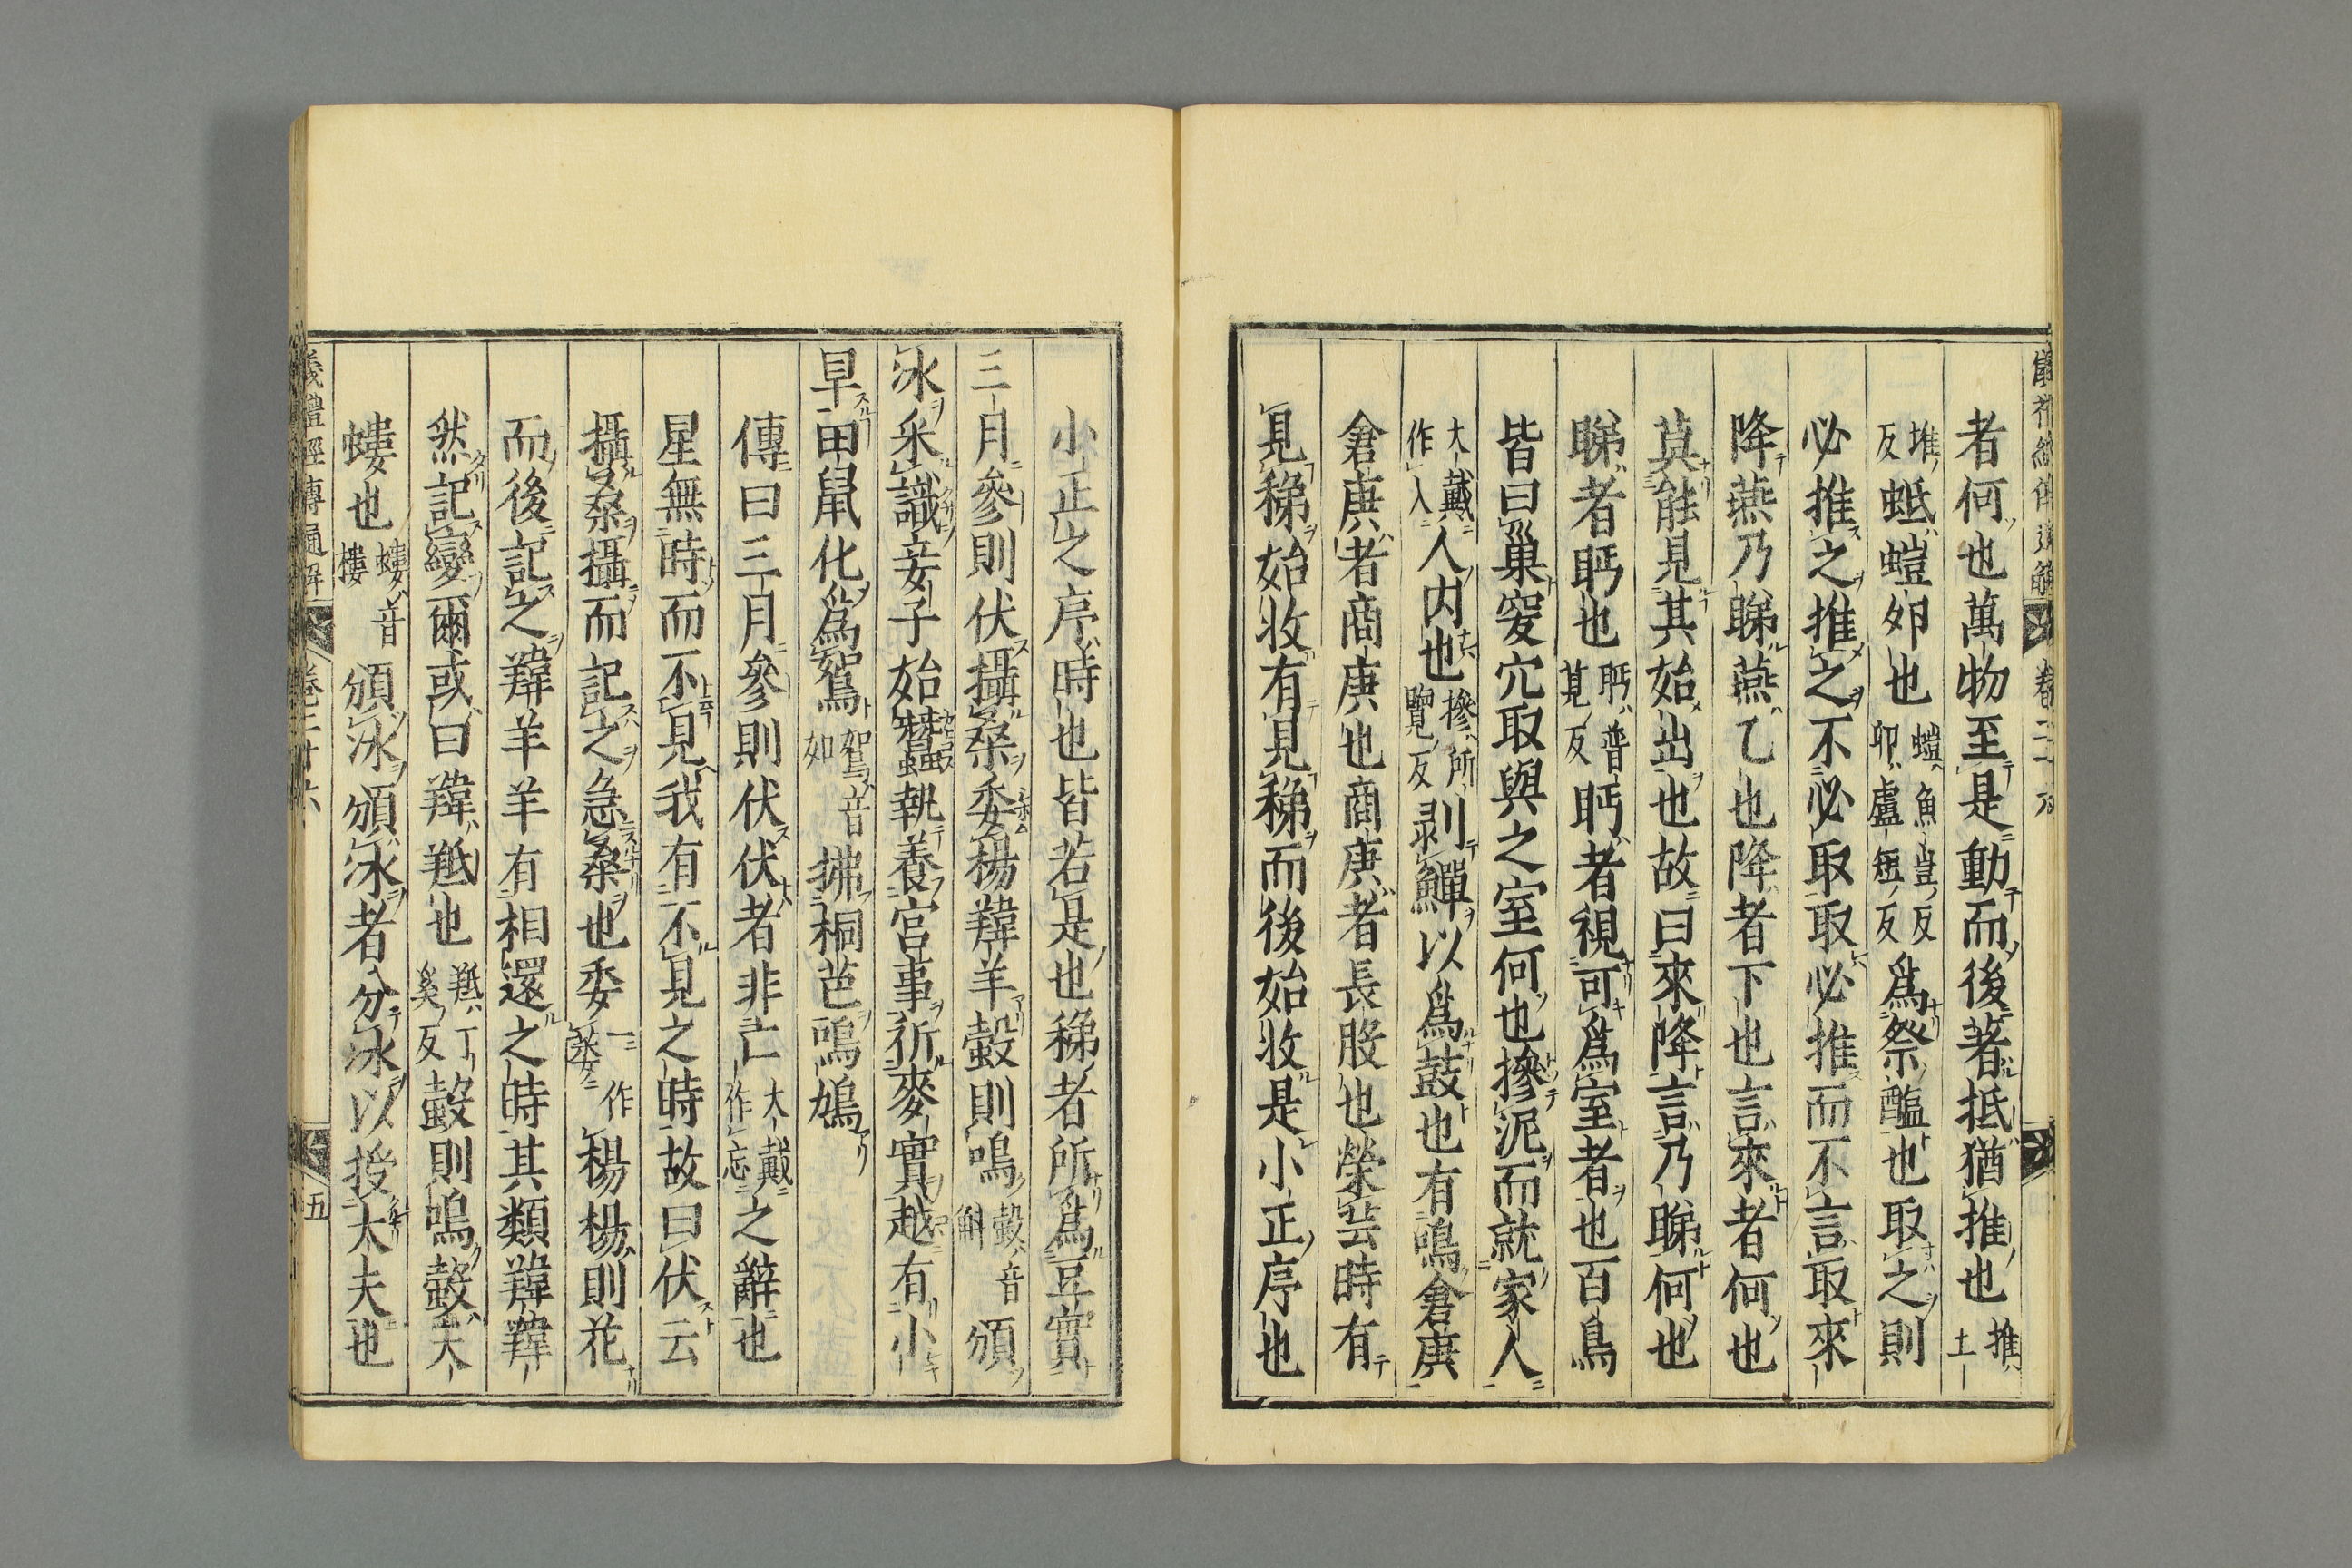 者何也萬物至是動而後著抵猶推也推土
堆反蚳螘卵也螘魚豈反卵盧短反爲祭醢也取之則
必推之推之不必取取必推而不言取來
降燕乃睇燕乙也降者下也言來者何也
莫能見其始出也故曰來降言乃睇何也
睇者眄也眄普莧反眄者視可爲室者也百鳥
皆曰巢穾穴取與之室何也摻泥而就家人
大戴作入人内也摻所覽反剥鱓以爲鼓也有鳴倉庚
倉庚者商庚也商庚者長股也榮芸時有
見稊始收有見稊而後始收是小正序也
小正之序時也皆若是也稊者所爲豆實
三月參則伏攝桑委楊羵羊螜則鳴螜音斛頒
冰采識妾子始蠶執養宮事祈麥實越有小
旱田鼠化爲鴽鴽音如拂桐芭鳴鳩
傳曰三月參則伏伏者非亡大戴作忘之辭也
星無時而不見我有不見之時故曰伏云
攝桑攝而記之急桑也委一作楊楊則花
而後記之羊羊有相還之時其類
然記變爾或曰羝也羝丁奚反螜則鳴螜天
螻也螻音樓頒冰頒冰者分冰以授大夫也
儀禮經傳通解 卷二十六 五